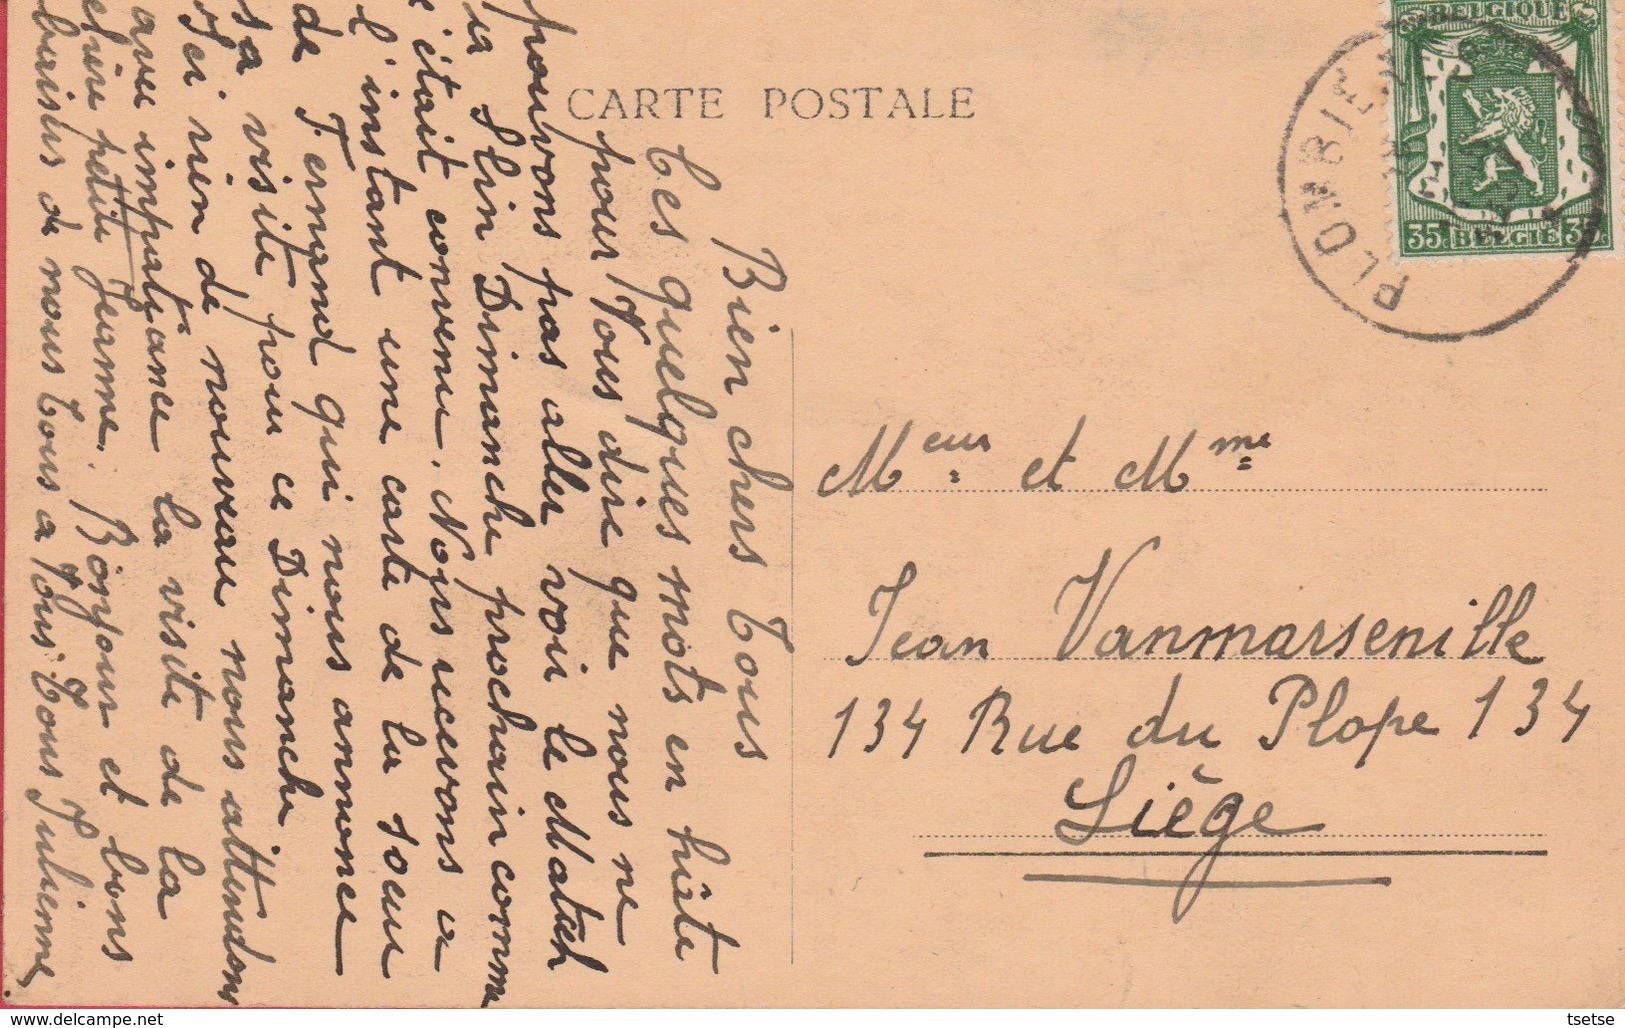 CARTE POSTALE
BELGIQUE
35c BELGIE 35c
PLOMBIERES
Bien chers Tous
Ces quelques mots en hâte
pour Vous dire que nous ne
pouvons pas aller voir le Match
Dimanche prochain comme
c'était convenu. Nous recevons a
l'instant une carte de la soeur
de Fernand qui nous annonce
sa visite pour ce Dimanche
Ici rien de nouveau nous attendons
avec impatience la visite de la
chère petite Jeanne. Bonjour et bons
baisers de nous tous a Vous Tous Julienne
Meur et Mme
Jean Vanmarsenille
134 Rue du Plope 134
Liège
delcampe.net
tsetse